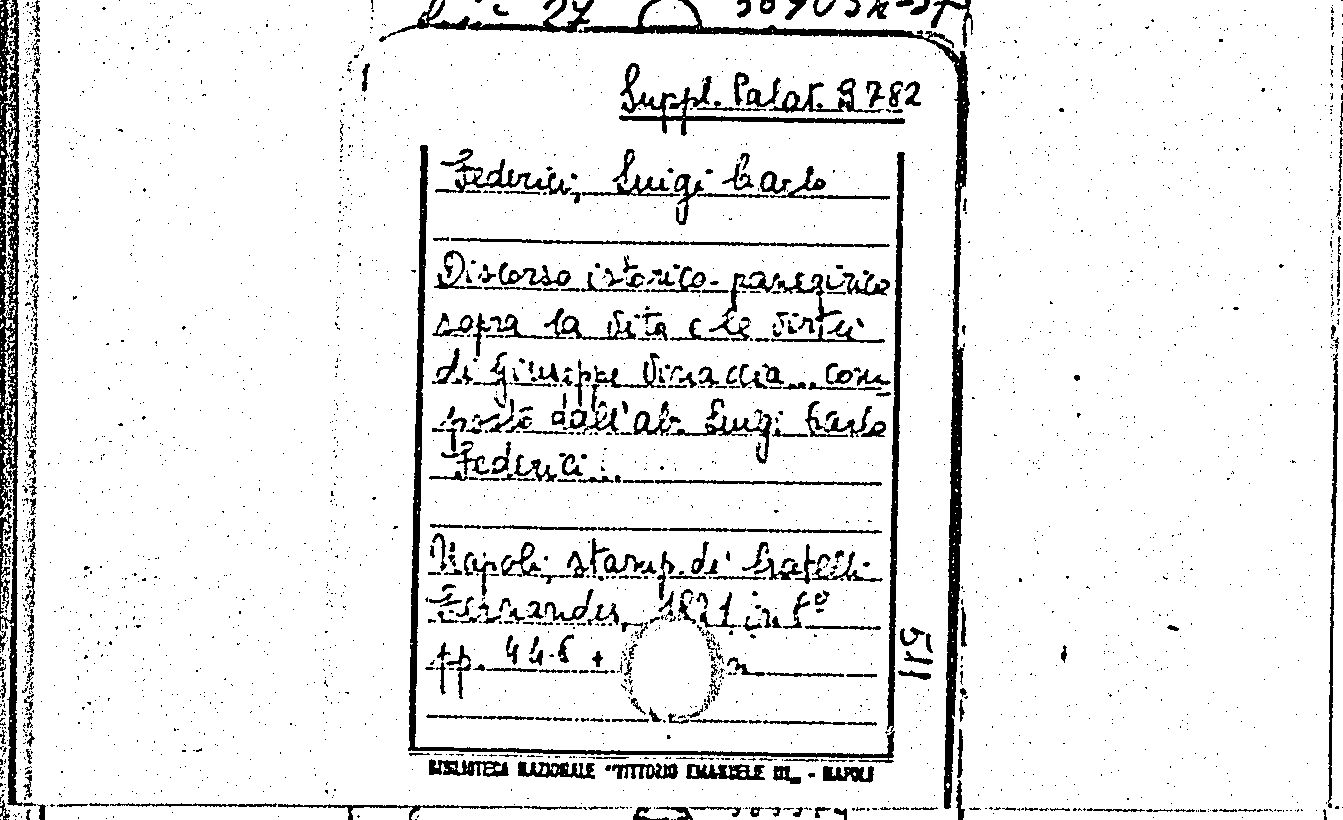 27
Suppl. Palat. B 782
Federici, Luigi Carlo
Discorso istorico-panegirico
sopra la vita e le virtù
di Giuseppe Vinaccia... com-
posto dall'ab. Luigi Carlo
Federici...
Napoli, stamp. de' fratelli
Fernandes, 1821 in f°
pp. 44
BIBLIOTECA NAZIONALE "VITTORIO EMANUELE III" - NAPOLI